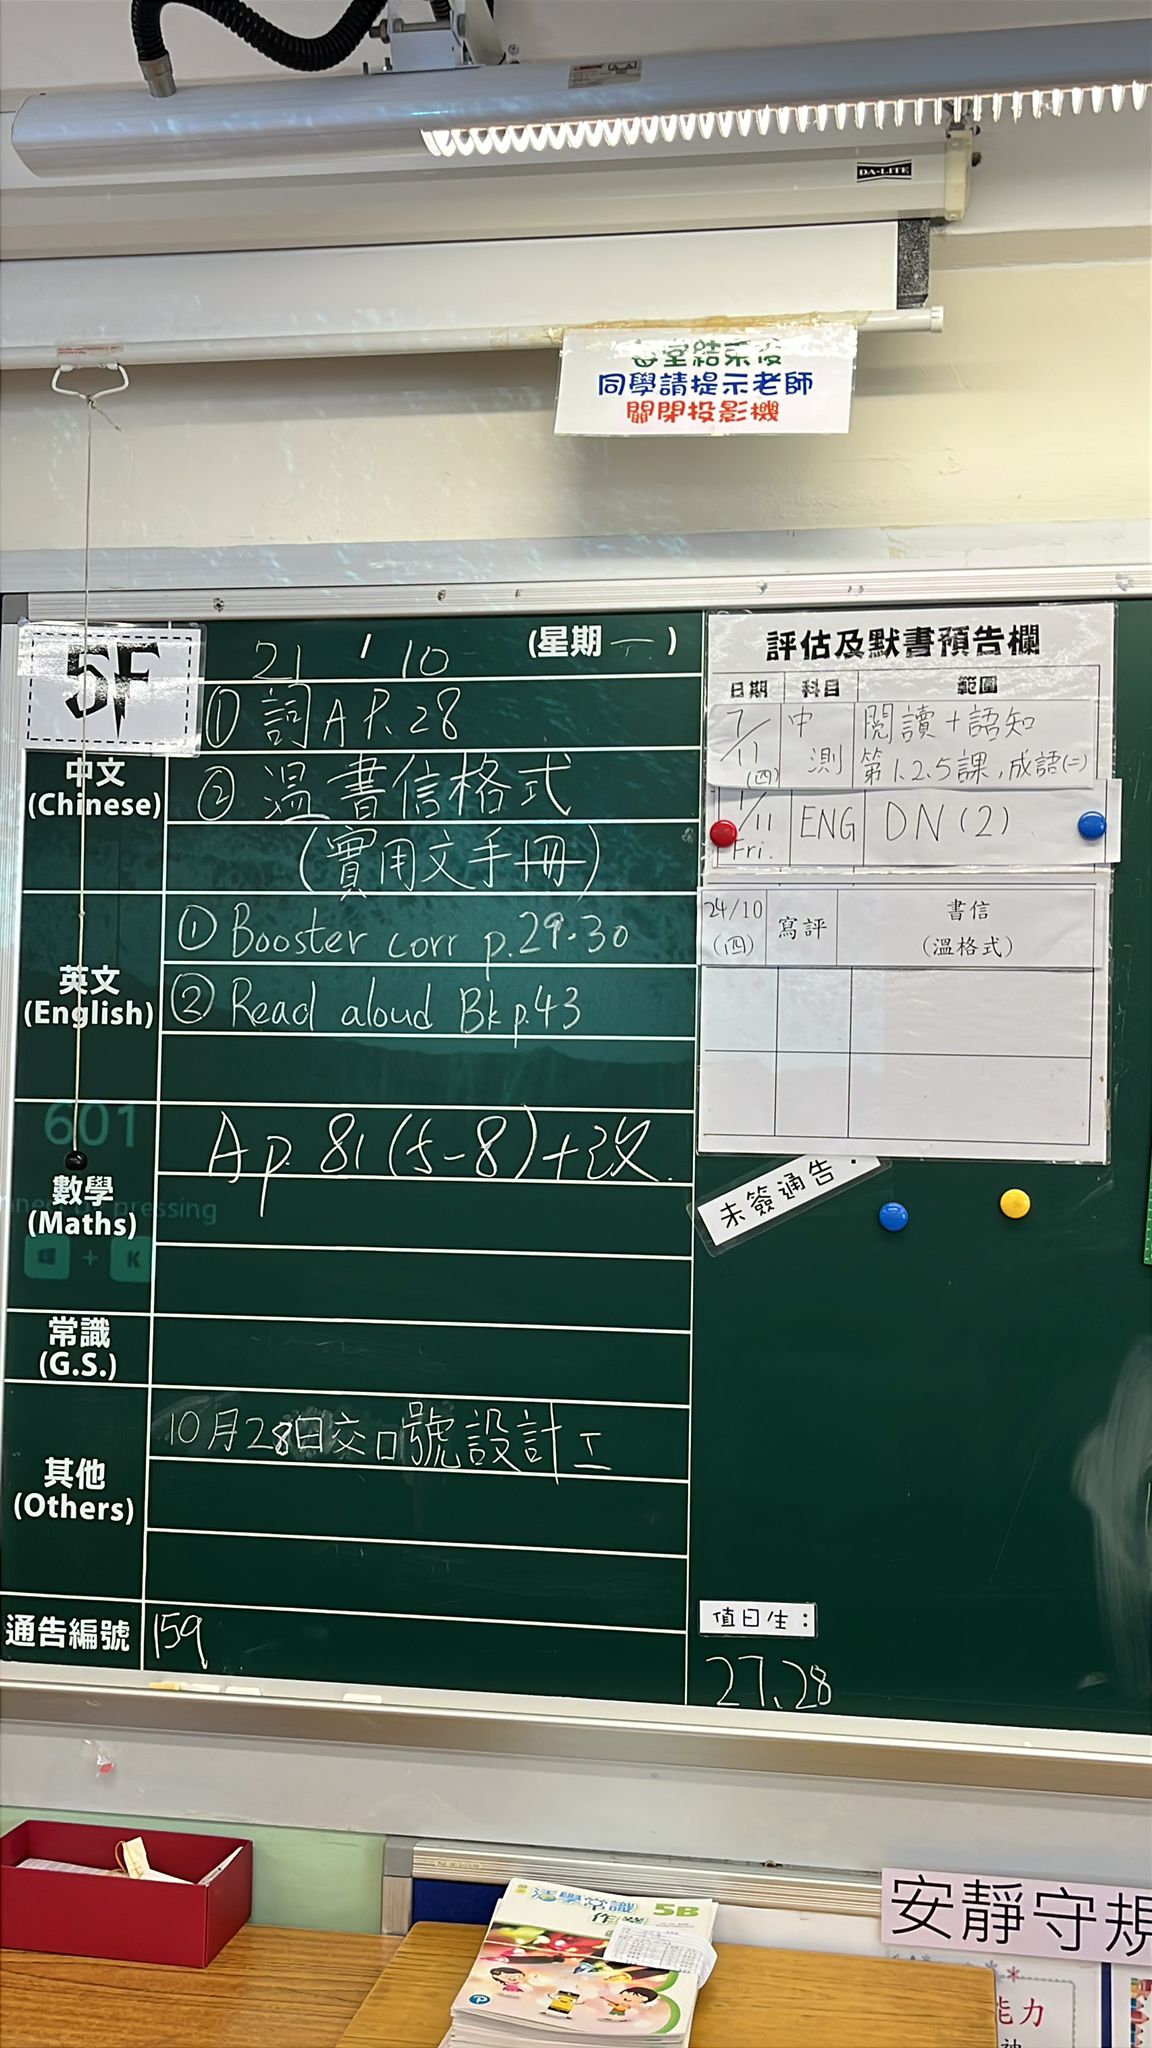 DA-LITE
每堂結束後
同學請提示老師
關閉投影機
5F
21 / 10 (星期一)
中文
(Chinese)
① 詞A P.28
② 溫書信格式
(實用文手冊)
英文
(English)
① Booster corr p.29-30
② Read aloud Bk p.43
601
pressing
+ K
數學
(Maths)
A p. 81 (5-8)+改
常識
(G.S.)
其他
(Others)
10月28日交口號設計工
通告編號
159
評估及默書預告欄
日期 科目 範圍
7/11 (四) 中測 閱讀+語知
第1.2.5課,成語(二)
1/11 Fri. ENG DN (2)
24/10 (四) 寫評 書信
(溫格式)
未簽通告:
值日生:
27.28
活學常識 5B
作業
安靜守規
能力
神